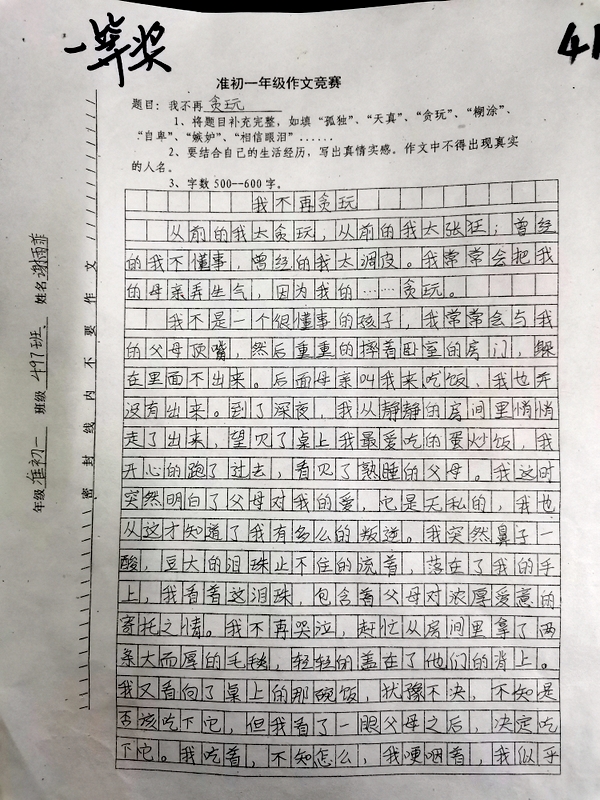 一等奖
41
准初一年级作文竞赛
题目：我不再贪玩
1、将题目补充完整，如填“孤独”、“天真”、“贪玩”、“糊涂”、
“自卑”、“嫉妒”、“相信眼泪”……
2、要结合自己的生活经历，写出真情实感。作文中不得出现真实
的人名。
3、字数500--600字。
我不再贪玩
从前的我太贪玩，从前的我太张狂；曾经
的我不懂事，曾经的我太调皮。我常常会把我
的母亲弄生气，因为我的……贪玩。
我不是一个很懂事的孩子，我常常会与我
的父母顶嘴，然后重重的摔着卧室的房门，躲
在里面不出来。后面母亲叫我来吃饭、我也并
没有出来。到了深夜，我从静静的房间里悄悄
走了出来，望见了桌上我最爱吃的蛋炒饭，我
开心的跑了过去，看见了熟睡的父母。我这时
突然明白了父母对我的爱，它是无私的，我也
从这才知道了我有多么的叛逆。我突然鼻子一
酸，豆大的泪珠止不住的流着，落在了我的手
上，我看着这泪珠，包含着父母对浓厚爱意的
寄托之情。我不再哭泣，赶忙从房间里拿了两
条大而厚的毛毯，轻轻的盖在了他们的背上。
我又看向了桌上的那碗饭，犹豫不决，不知是
否该吃下它，但我看了一眼父母之后，决定吃
下它。我吃着，不知怎么，我哽咽着，我似乎
年级准初一 班级497班、 姓名谢雨菲
密封线内不要作文